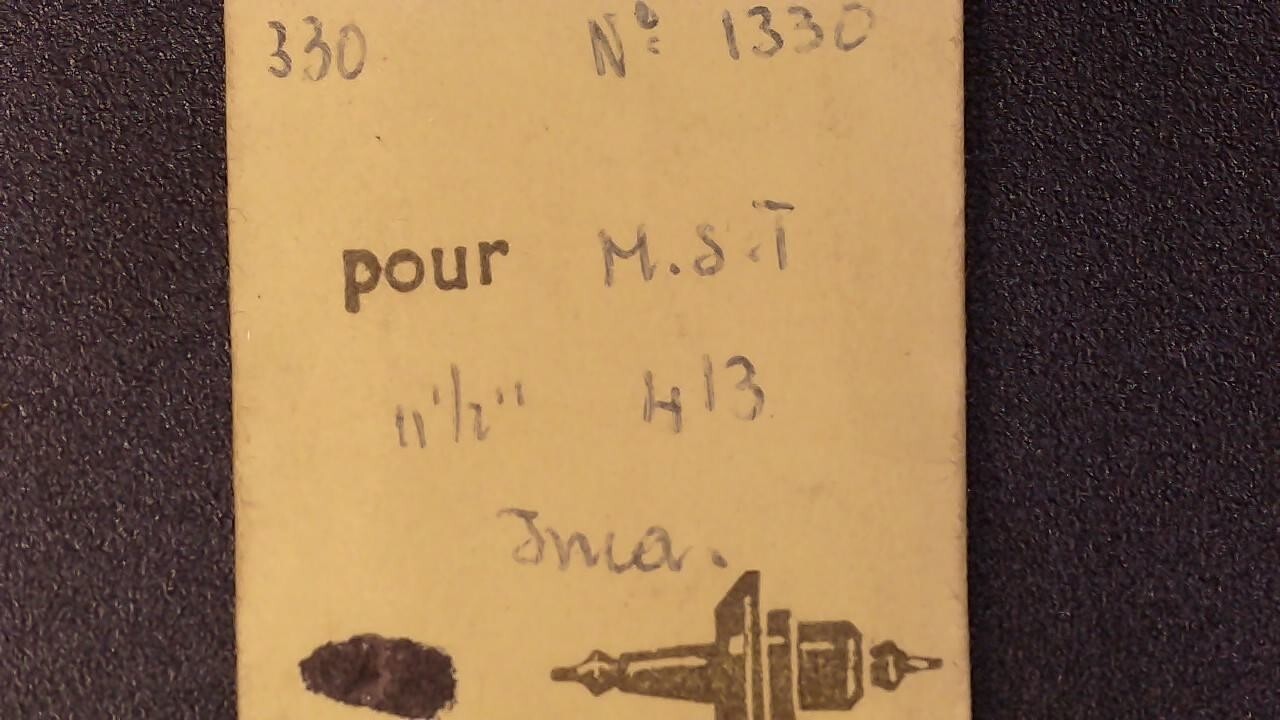 330 Nº 1330
pour M.S.T
11 1/2" 413
Inca.